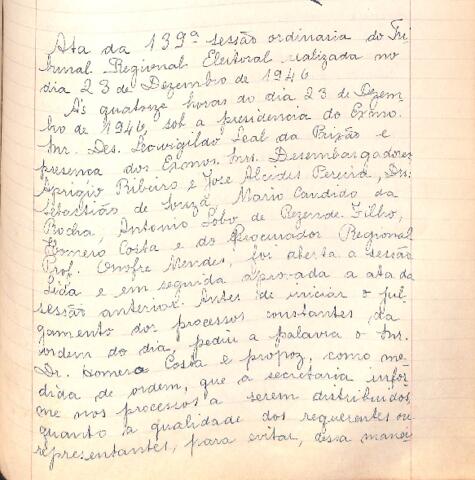 Ata da 139ª sessão ordinaria do Tri
bunal Regional Eleitoral realizada no
dia 23 de Dezembro de 1946
Ás quatorze horas do dia 23 de Dezem
bro de 1946, sob a presidencia do Exmo.
Snr. Des. Leovigildo Leal da Paixão e
presença dos Exmos. Snrs. Desembargadores
Aprigio Ribeiro e José Alcides Pereira, Drs.
Sebastião de Souza, Mario Candido da
Rocha, Antonio Lobo de Rezende Filho,
Homero Costa e do Procurador Regional
Prof. Onofre Mendes, foi aberta a sessão
Lida e em seguida aprovada a ata da
sessão anterior. Antes de iniciar o jul
gamento dos processos constantes da
ordem do dia, pediu a palavra o Snr.
Dr. Homero Costa e propoz, como me
dida de ordem, que a secretaria infor
me nos processos a serem distribuidos,
quanto a qualidade dos requerentes ou
representantes, para evitar, dessa manei